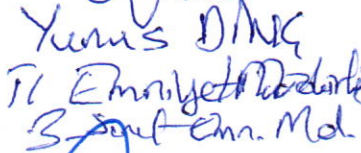 Yunus DİNÇ
İl Emniyet Müdürlü
3. Sınıf Emn. Müd.